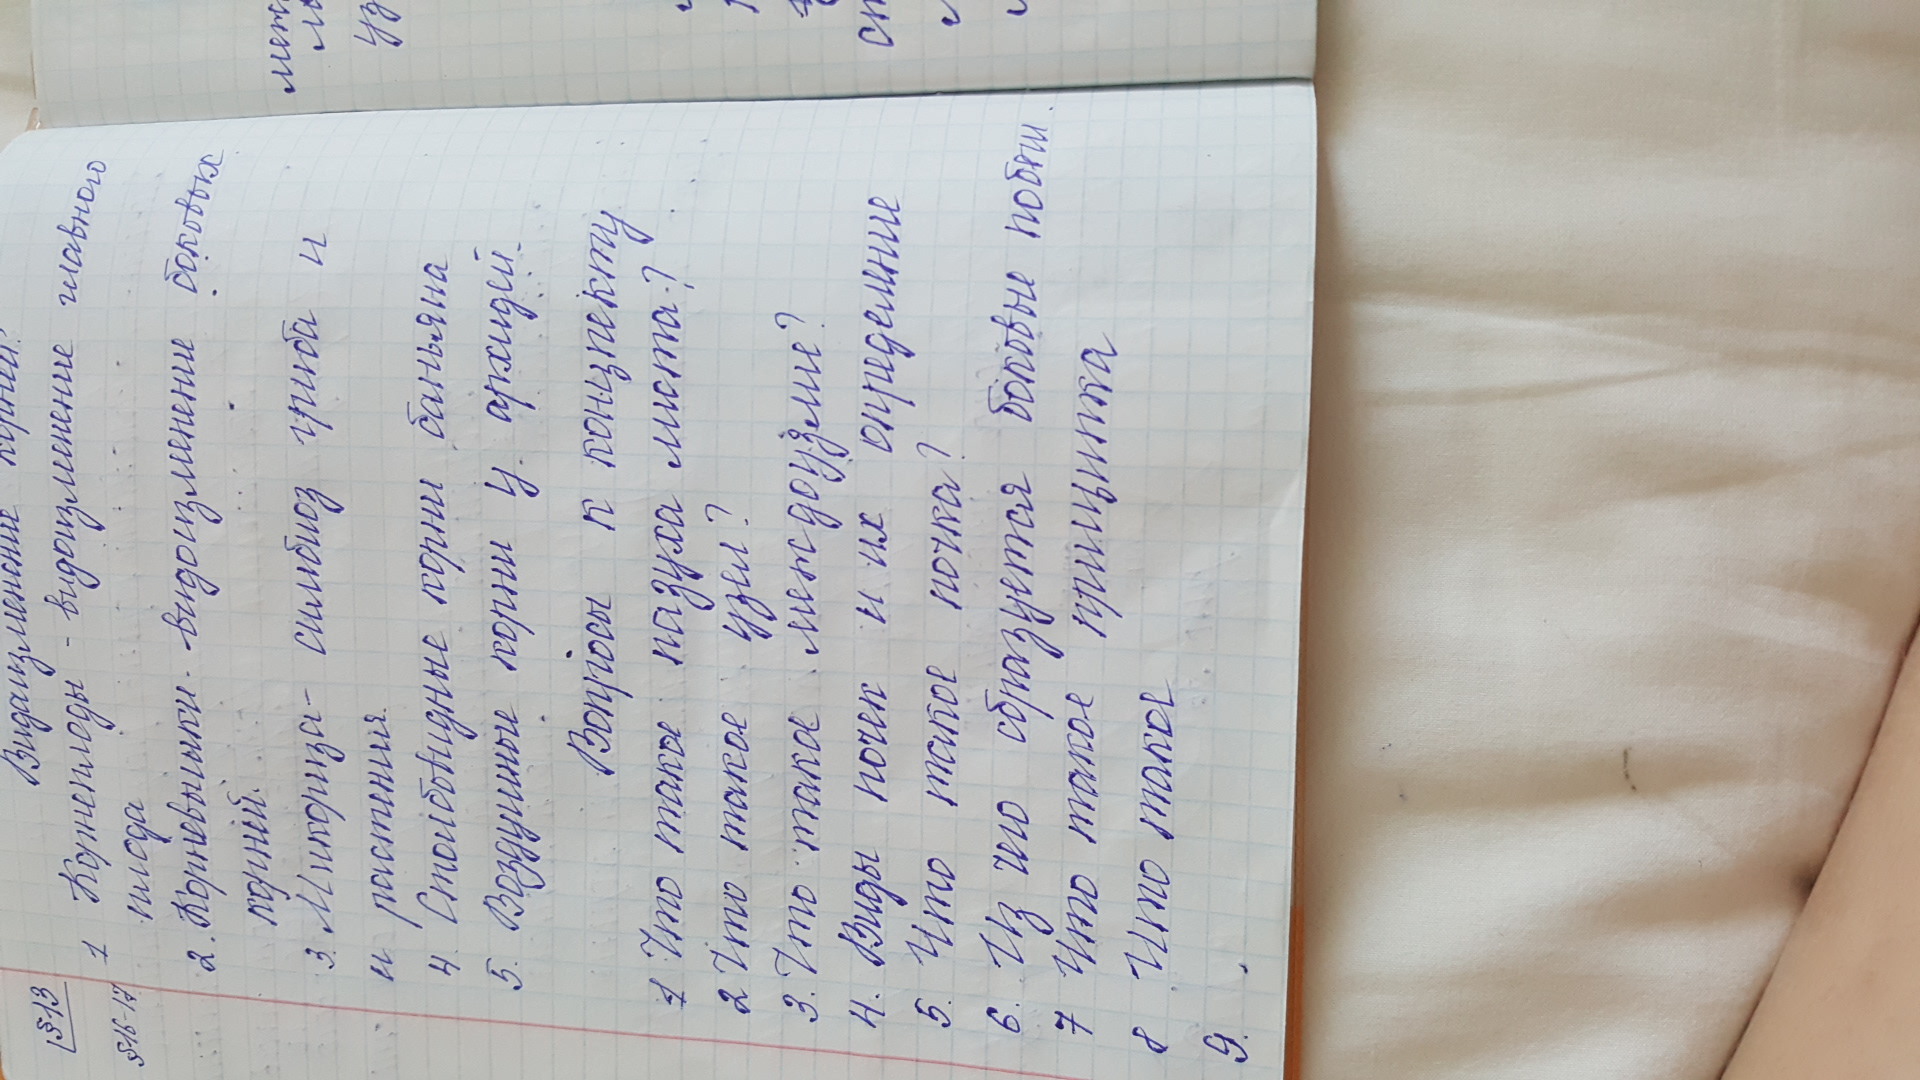 §13
§16-17
Видаизменение корней:
1 Корнеплоды - видоизменение главного
плода
2. Корневишки - видоизменение боковых
корней.
3. Микориза - симбиоз гриба и
и растения.
4. Столбовидные корни баньяна
5. Воздушные корни у архидей.
Вопросы к концпекту
1 Что такое пазуха листа?
2 Что такое узел?
3. Что такое междоузелие?
4. Виды почек и их определение
5. Что такое почка?
6. Из чего образуется боковые побеги.
7 Что такое прищипка
8 Что такое
9.
уз
ст